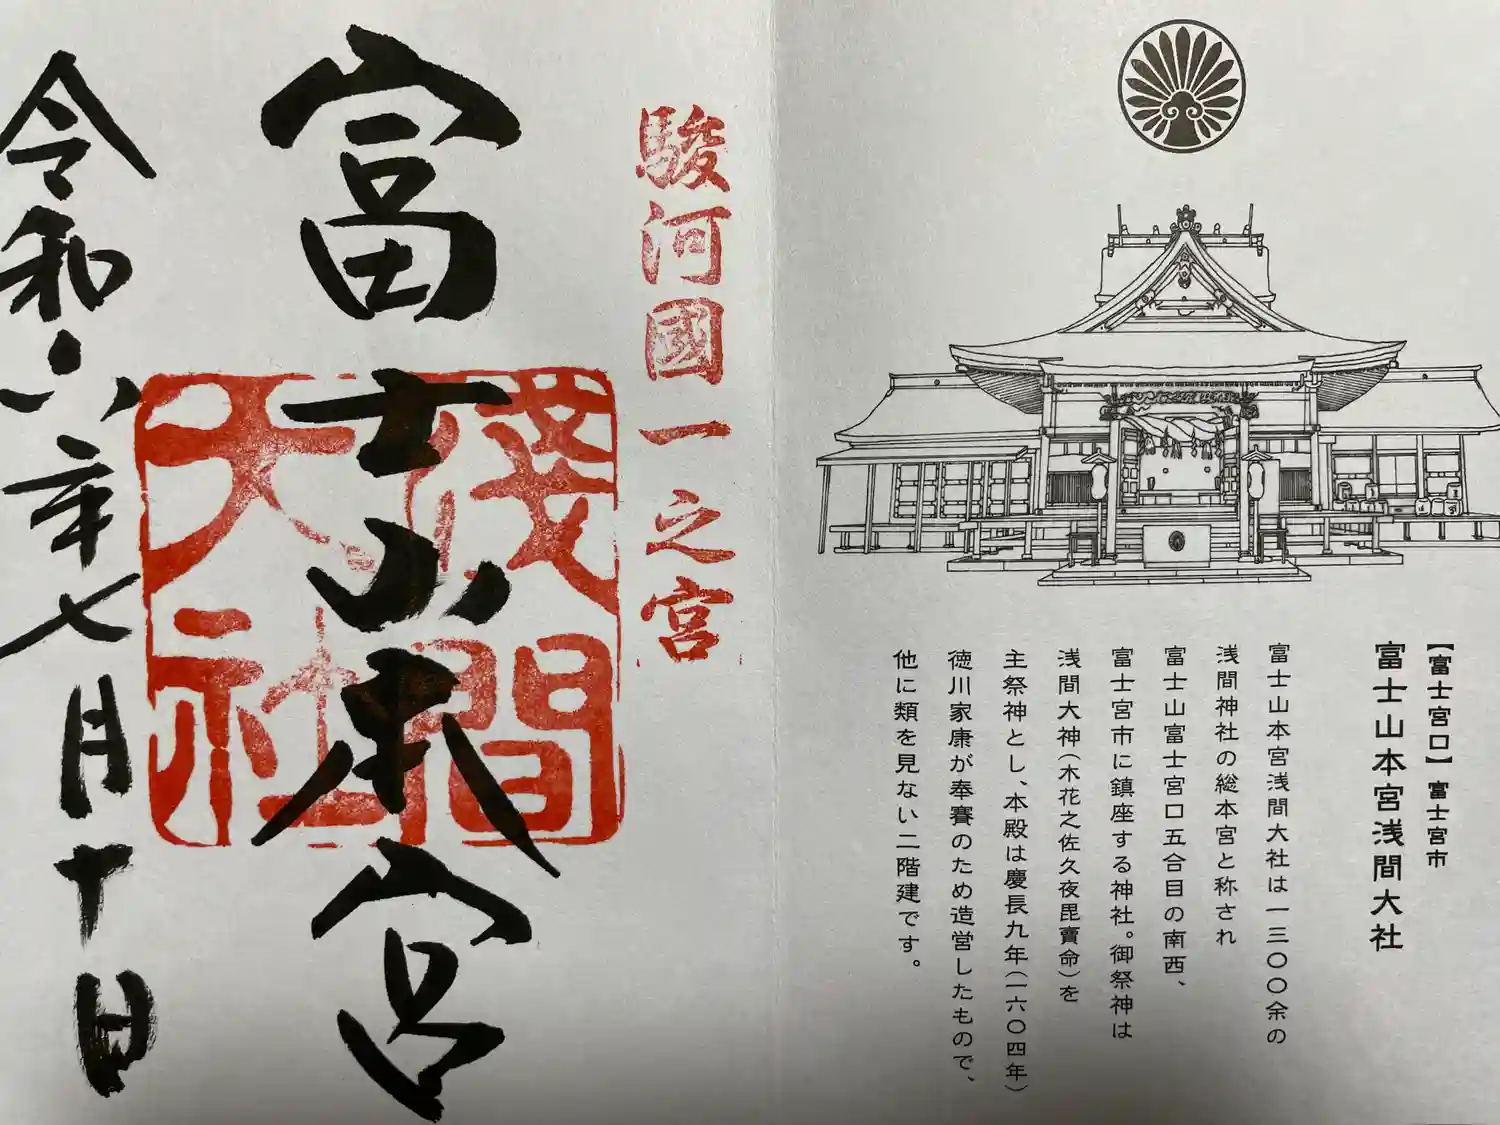 【富士宮口】富士宮市
富士山本宮浅間大社
富士山本宮浅間大社は一三〇〇余の
浅間神社の総本宮と称され
富士山富士宮口五合目の南西、
富士宮市に鎮座する神社。御祭神は
浅間大神(木花之佐久夜毘賣命)を
主祭神とし、本殿は慶長九年(一六〇四年)
徳川家康が奉賽のため造営したもので、
他に類を見ない二階建です。
駿河國一之宮
富士山本宮
淺間
大社
令和六年七月十日